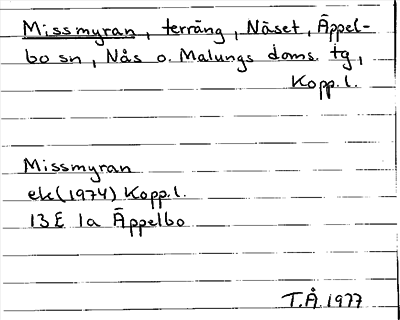 Missmyran, terräng, Näset, Äppel-
bo sn, Nås o. Malungs doms. tg,
Kopp.l.
Missmyran
ek(1974) Kopp.l.
13E 1a Äppelbo
T.Å 1977